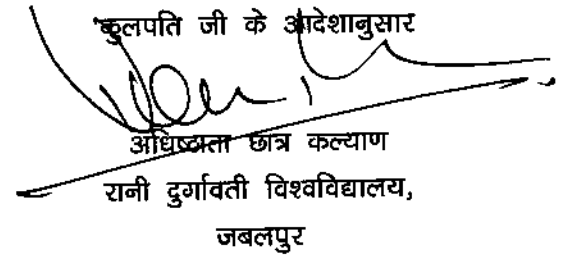 कुलपति जी के आदेशानुसार
अधिष्ठाता छात्र कल्याण
रानी दुर्गावती विश्वविद्यालय,
जबलपुर